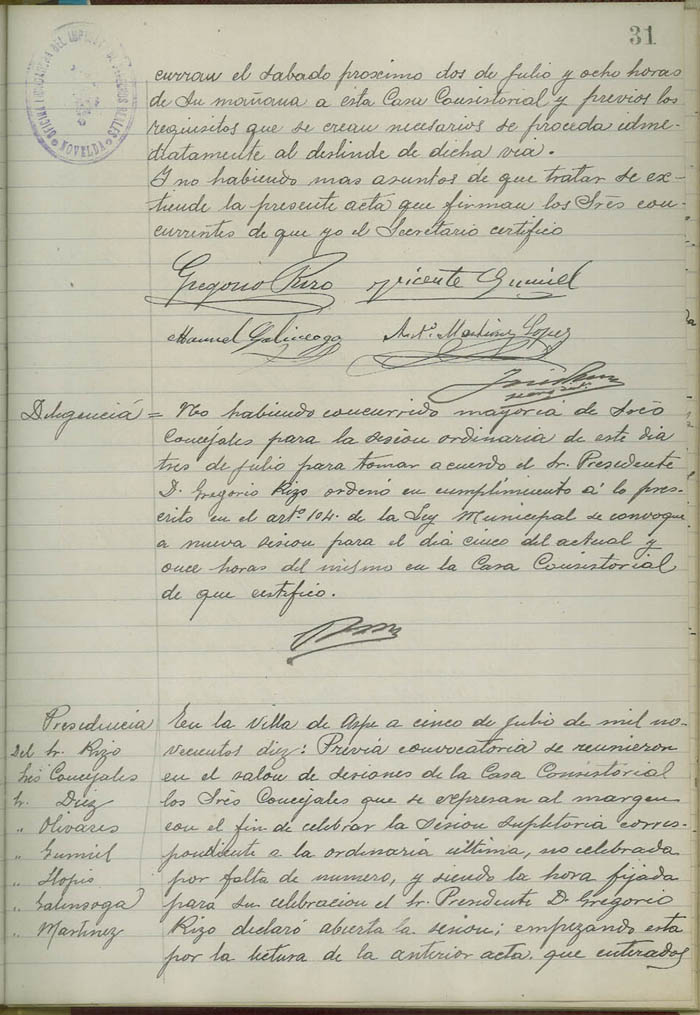 31
NOVELDA
curran el sabado prosimo dos de Julio y ocho horas
de su mañana a esta Casa Consistorial y previos los
requisitos que se crean necesarios se proceda idme-
diatamente al deslinde de dicha via.
Y no habiendo mas asuntos de que tratar se ex-
tiende la presente acta que firman los Srēs con-
currentes de que yo el Secretario certifico
Gregorio Rizo Vicente Gumiel
Manuel Galinsoga Antº. Martinez Lopez
Diligencia = No habiendo concurrido mayoria de Srēs
Concejales para la sesion ordinaria de este dia
tres de julio para tomar acuerdo el Sr. Presidente
D. Gregorio Rizo ordenó en cumplimiento á lo pres-
crito en el artº. 104. de la Ley Municipal se convoque
a nueva sesion para el dia cinco del actual y
once horas del mismo en la Casa Consistorial
de que certifico.
Presidencia
Del Sr. Rizo
Srēs Concejales
Sr. Diez
" Olivares
" Gumiel
" Llopis
" Galinsoga
" Martinez
En la Villa de Aspe a cinco de julio de mil no-
vecientos diez: Prévia convocatoria se reunieron
en el salon de sesiones de la Casa Consistorial
los Srēs Concejales que se expresan al margen
con el fin de celebrar la sesion supletoria corres-
pondiente a la ordinaria última, no celebrada
por falta de numero, y siendo la hora fijada
para su celebracion el Sr. Presidente D. Gregorio
Rizo declaró abierta la sesion; empezando esta
por la lectura de la anterior acta. que enterados